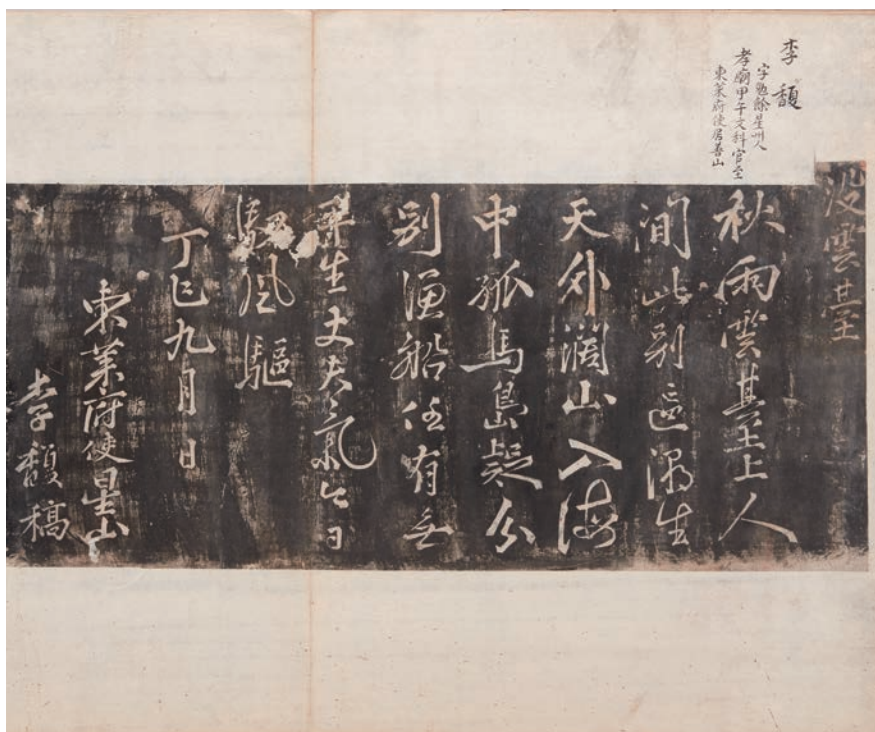 李馥
字勉餘星州人
孝廟甲午文科官至
東萊府使居善山
沒雲臺
秋雨雲臺上人
間此別區濤生
天外濶山入海
中孤馬島疑分
別漁船任有無
平生丈夫氣今日
馭風驅
丁巳九月日
東萊府使星山
李馥稿